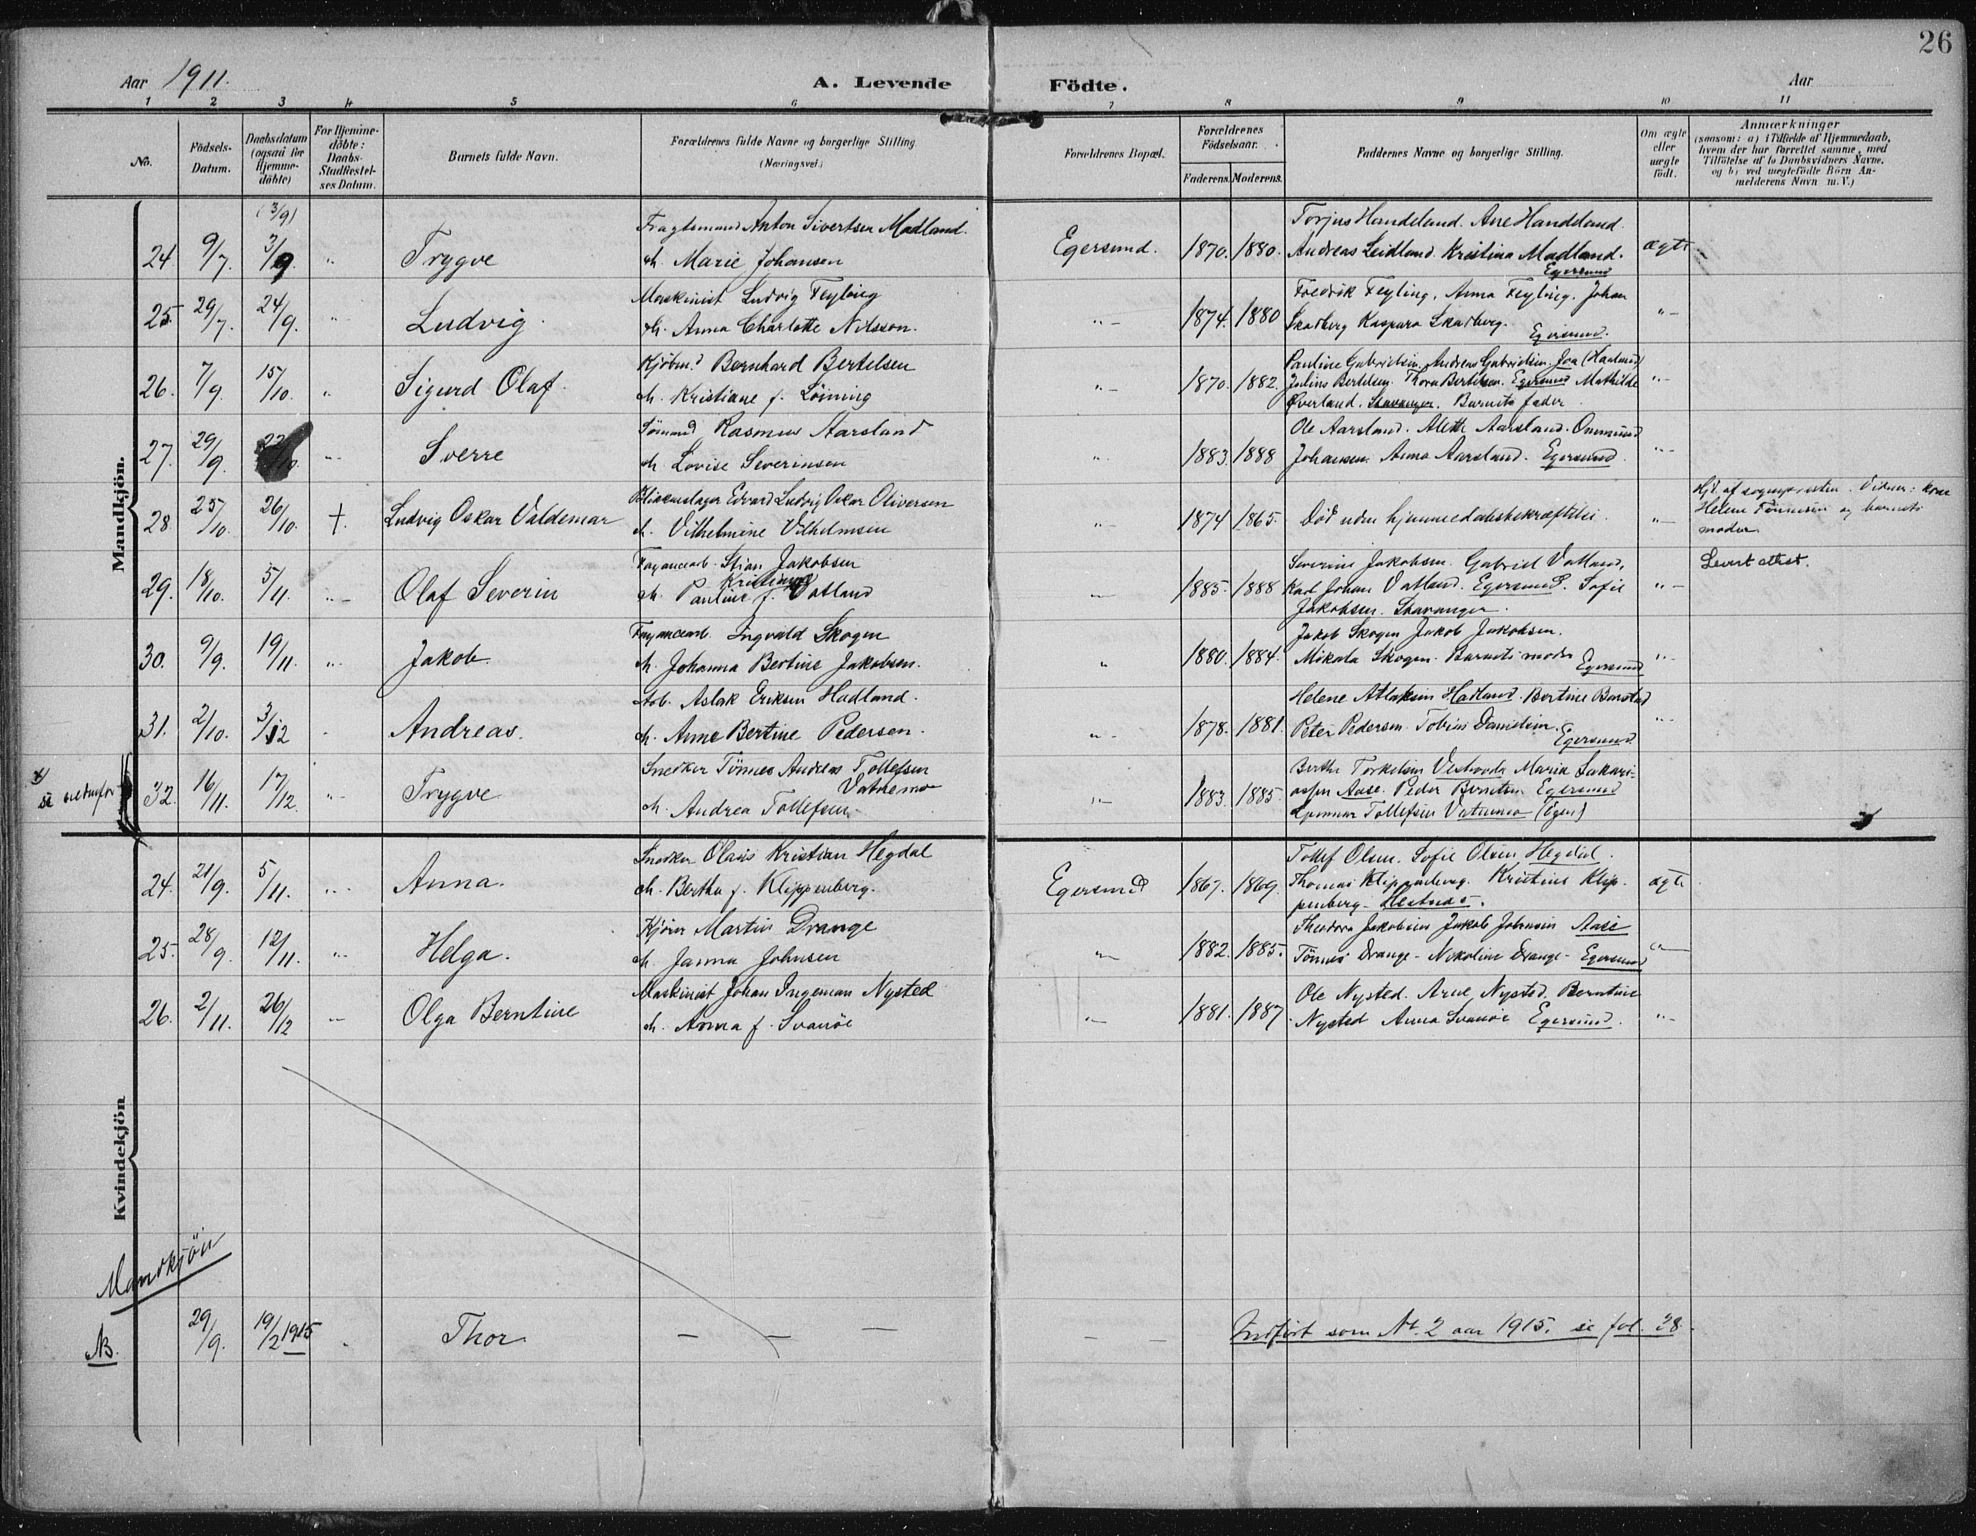 26
Aar 1911.
A. Levende Födte.
Aar
1 2 3 4 5 6 7 8 9 10 11
No.
Födsels-
Datum.
Daabsdatum
(ogsaa for
Hjemme-
döbte)
For Hjemme-
döbte:
Daabs-
Stadfæstel-
ses Datum.
Barnets fulde Navn.
Forældrenes fulde Navne og borgerlige Stilling
(Næringsvei.)
Forældrenes Bopæl.
Forældrenes
Födselsaar.
Faderens. Moderens.
Faddernes Navne og borgerlige Stilling.
Om ægte
eller
uægte
födt.
Anmærkninger
(saasom: a) i Tilfælde af Hjemmedaab,
hvem der har forrettet samme, med
Tilföielse af to Daabsvidners Navne.
og b) ved uægtefödte Börn An-
melderens Navn m. V.)
Mandkjön.
(3/9)
24. 9/7. 3/9 " Trygve
Fragtemand Anton Sivertsen Madland.
h. Marie Johansen
Egersund. 1870. 1880.
Torjus Handeland. Ane Handeland
Andreas Leidland. Kristina Madland.
Egersund
ægte
25. 29/7. 24/9. " Ludvig.
Maskinist Ludvig Feyling
h. Anna Charlotte Nilsson.
" 1874. 1880
Fredrik Feyling. Anna Feyling. Johan
Skadberg Kaspara Skadberg.
Egersund.
"
26. 7/9. 15/10. " Sigurd Olaf.
Kjöbmd Bernhard Bertelsen
h. Kristiane f. Löining
" 1870. 1882.
Pauline Gabrielsen, Andreas Gabrielsen,
Julius Bertelsen. Thora Bertelsen. Egersund Mathilde
Överland. Stavanger. Barnets fader.
"
27. 29/9. " Sverre
Sömand Rasmus Aarsland
h. Lovise Severinsen
" 1883. 1888
Ole Aarsland. Alette Aarsland. Ommund
Johansen. Anna Aarsland. Egersund.
"
28. 25/10. 26/10. †. Ludvig Oskar Valdemar
Blikkenslager Edvard Ludvig Oskar Oliversen
h. Vilhelmine Vilhelmsen
" 1874 1865.
Död uden hjemmedaabsbekræftelse.
"
Hjd. af sognepresten. Vidner: kone
Helene Tönnesen og barnets
moder.
29. 18/10. 5/11. " Olaf Severin
Fayancearb. Stian Jakobsen
Kristiane
h. Pauline f. Vatland
" 1885. 1888
Severine Jakobsen. Gabriel Vatland,
Karl Johan Vatland. Egersund. Sofie
Jakobsen. Stavanger.
"
Levert attest.
30. 9/9. 19/11. " Jakob.
Fayancearb. Ingvald Skogen
h. Johanna Bertine Jakobsen.
" 1880. 1884.
Jakob Skogen Jakob Jakobsen.
Mikala Skogen. Barnets moder Egersund
"
31. 2/10. 3/12 " Andreas.
Arb. Aslak Eriksen Hadland.
h. Anne Bertine Pedersen.
" 1878. 1881.
Helene Atlaksen Hadland. Bertine
Peter Pedersen Tobias Danielsen.
Egersund
"
32. 16/11. 17/12. " Trygve
Snedker Tönnes Andreas Tollefsen
Vatnemo
h. Andrea Tollefsen.
" 1883. 1885.
Berthe Torkelsen Maria Sakari-
assen Aase. Peder Berntsen Egersund
Gunnar Tollefsen Vatnemo (Egen)
Kvindekjön
24. 21/9. 5/11. " Anna.
Snedker Olaus Kristian Hegdal
h. Bertha f. Klippenberg.
Egersund 1867. 1869.
Tollef Olsen. Sofie Olsen Hegdal.
Thomas Klippenberg. Kristine Klip-
penberg- Hestnes.
ægte
25. 28/9. 12/11. " Helga.
Kjörer Martin Drange
h. Janna Johnsen
" 1882. 1885.
Theodora Jakobsen Jakob Johnsen Aase
Tönnes Drange- Nikoline Drange- Egersund
"
26. 2/11. 26/12 " Olga Berntine
Maskinist Johan Ingeman Nysted
h. Anna f. Svanöe
" 1881. 1887.
Ole Nysted. Arne Nysted. Berntine
Nysted Anna Svanöe Egersund.
"
Mandkjön
NB. 29/9. 19/2 1915 " Thor — — — — — —
Indfört som No. 2 aar 1915. se fol. 38.